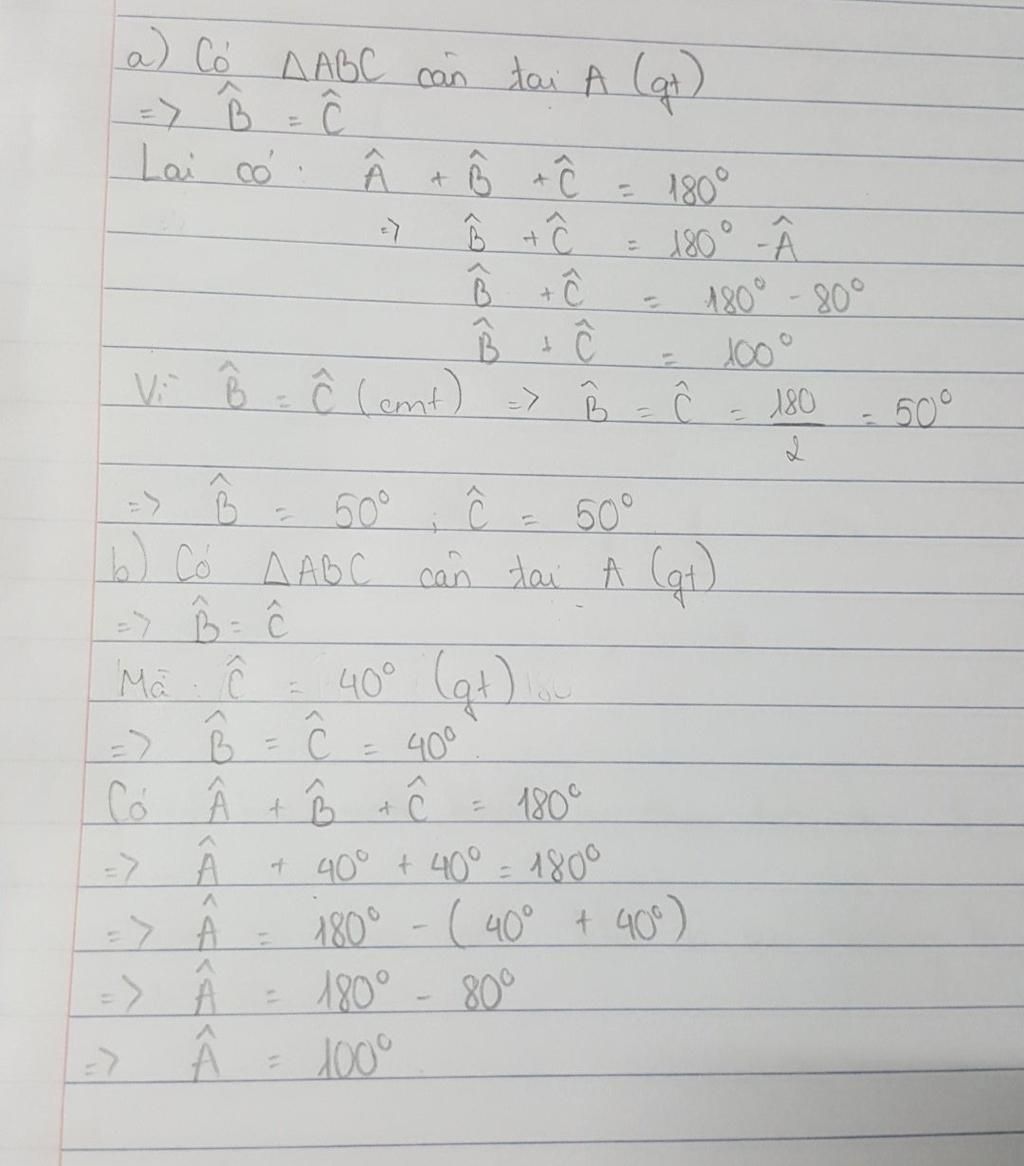 a) Có ΔABC cân tại A (gt)
=> B̂ = Ĉ
Lại có: Â + B̂ + Ĉ = 180°
=> B̂ + Ĉ = 180° - Â
B̂ + Ĉ = 180° - 80°
B̂ + Ĉ = 100°
Vì B̂ = Ĉ (cmt) => B̂ = Ĉ = 180/2 = 50°
=> B̂ = 50° ; Ĉ = 50°
b) Có ΔABC cân tại A (gt)
=> B̂ = Ĉ
Mà Ĉ = 40° (gt)
=> B̂ = Ĉ = 40°.
Có Â + B̂ + Ĉ = 180°
=> Â + 40° + 40° = 180°
=> Â = 180° - (40° + 40°)
=> Â = 180° - 80°
=> Â = 100°